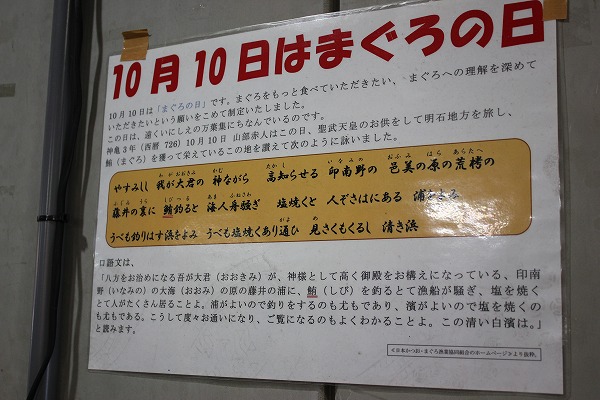 10月10日はまぐろの日
10月10日は「まぐろの日」です。まぐろをもっと食べていただきたい、まぐろへの理解を深めて
いただきたいという願いをこめて制定いたしました。
この日は、遠くいにしえの万葉集にちなんでいるのです。
神亀3年（西暦 726）10月10日 山部赤人はこの日、聖武天皇のお供をして明石地方を旅し、
鮪（まぐろ）を獲って栄えているこの地を讃えて次のように詠いました。
やすみしし 我が大君の 神ながら 高知らせる 印南野の 邑美の原の荒栲の
藤井の裏に 鮪釣ると 海人舟騒ぎ 塩焼くと 人ぞさはにある 浦をよみ
うべも釣りはす浜をよみ うべも塩焼くあり通ひ 見さくもくるし 清き浜
口語文は、
「八方をお治めになる吾が大君（おおきみ）が、神様として高く御殿をお構えになっている、印南
野（いなみの）の大海（おおみ）の原の藤井の浦に、鮪（しび）を釣るとて漁船が騒ぎ、塩を焼く
とて人がたくさん居ることよ。浦がよいので釣りをするのも尤もであり、濱がよいので塩を焼くの
も尤もである。こうして度々お通いになり、ご覧になるのもよくわかることよ。この清い白濱は。」
と読みます。
≪日本かつお・まぐろ漁業協同組合のホームページ≫より抜粋。